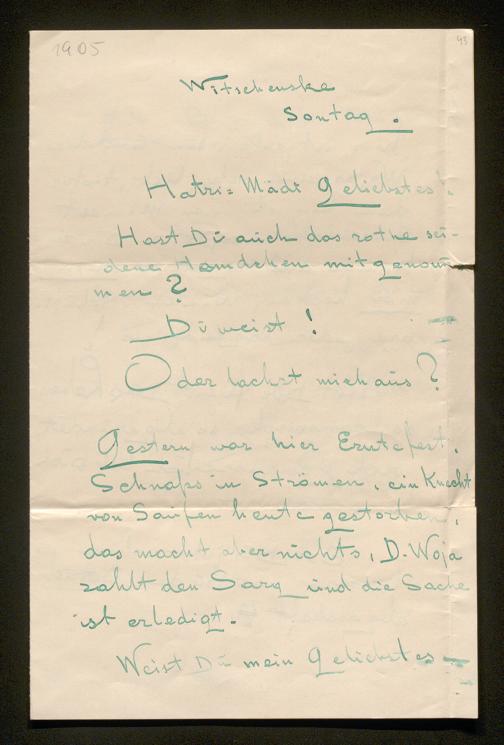 1905
43
Witschenske
Sontag.
Hatzi=Mädi Geliebstes!
Hast Du auch das rothe sei-
dene Hemdchen mitgenom-
men?
Du weist!
Oder lachst mich aus?
Gestern war hier Erntefest.
Schnaps in Strömen, ein Knecht
von Saufen heute gestorben,
das macht aber nichts, D. Woja
zahlt den Sarg und die Sache
ist erledigt.
Weist Du mein Geliebstes —